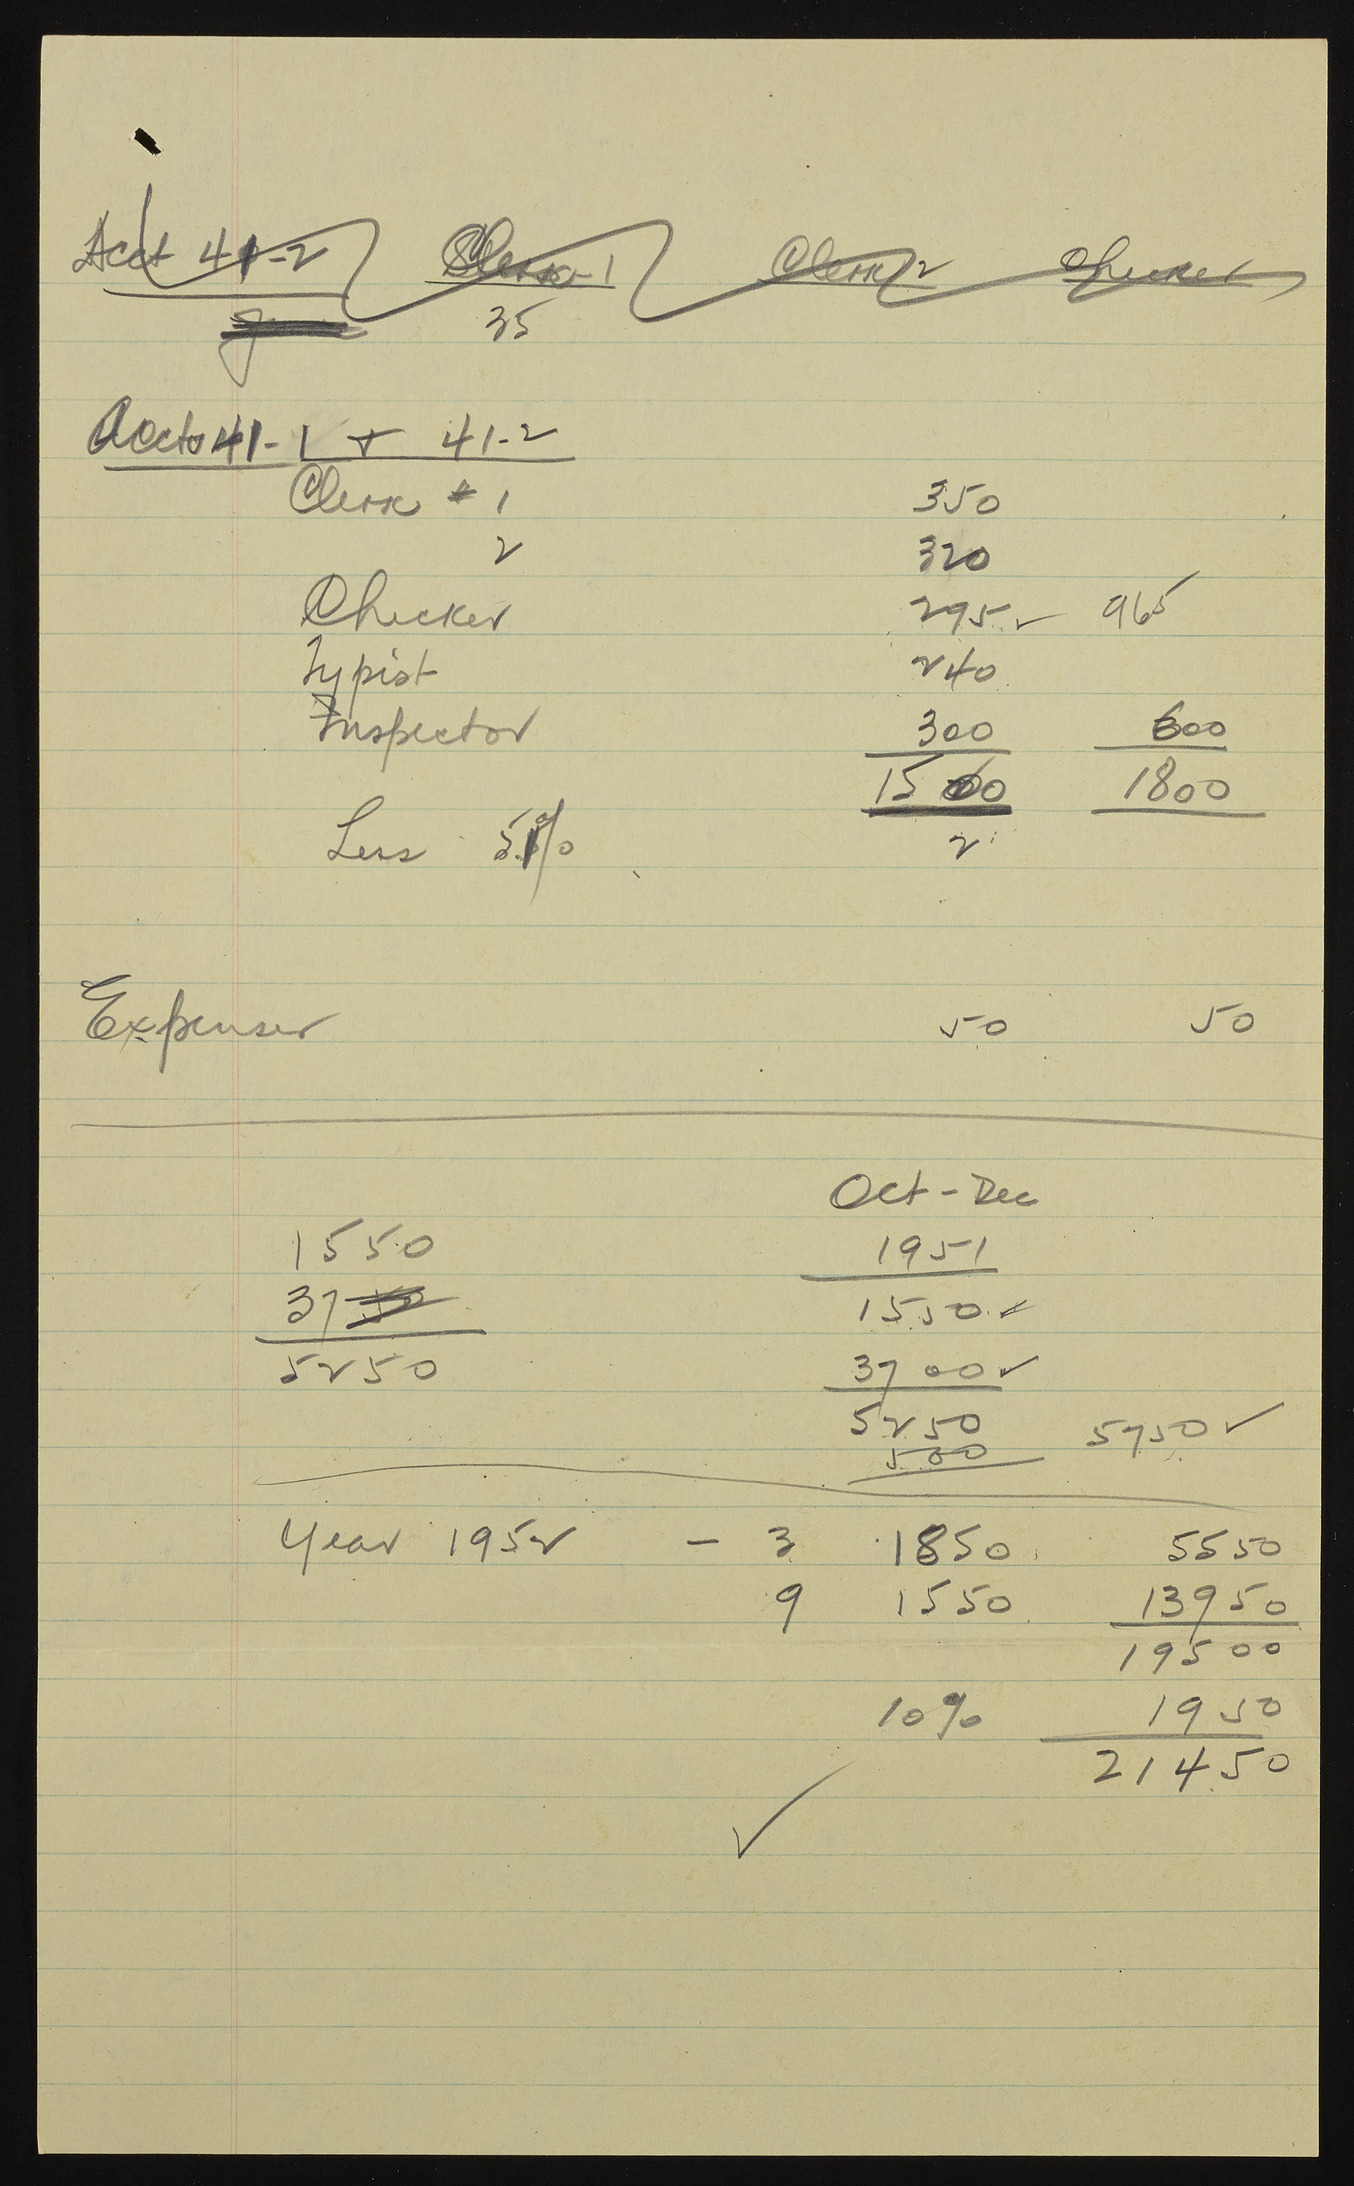 Acct 41-2 Clerk-1 Clerk 2 Checker
35
Accts 41-1 + 41-2
Clerk # 1 350
2 320
Checker 295 ✓ 965
Typist 240
Inspector 300 600
1500 1800
Less 5% 2
Expenses 50 50
Oct - Dec
1550 1951
37 1550 ✓
5250 3700 ✓
5250 5750 ✓
500
Year 1952 - 3 1850 5550
9 1550 13950
19500
10% 1950
21450
✓